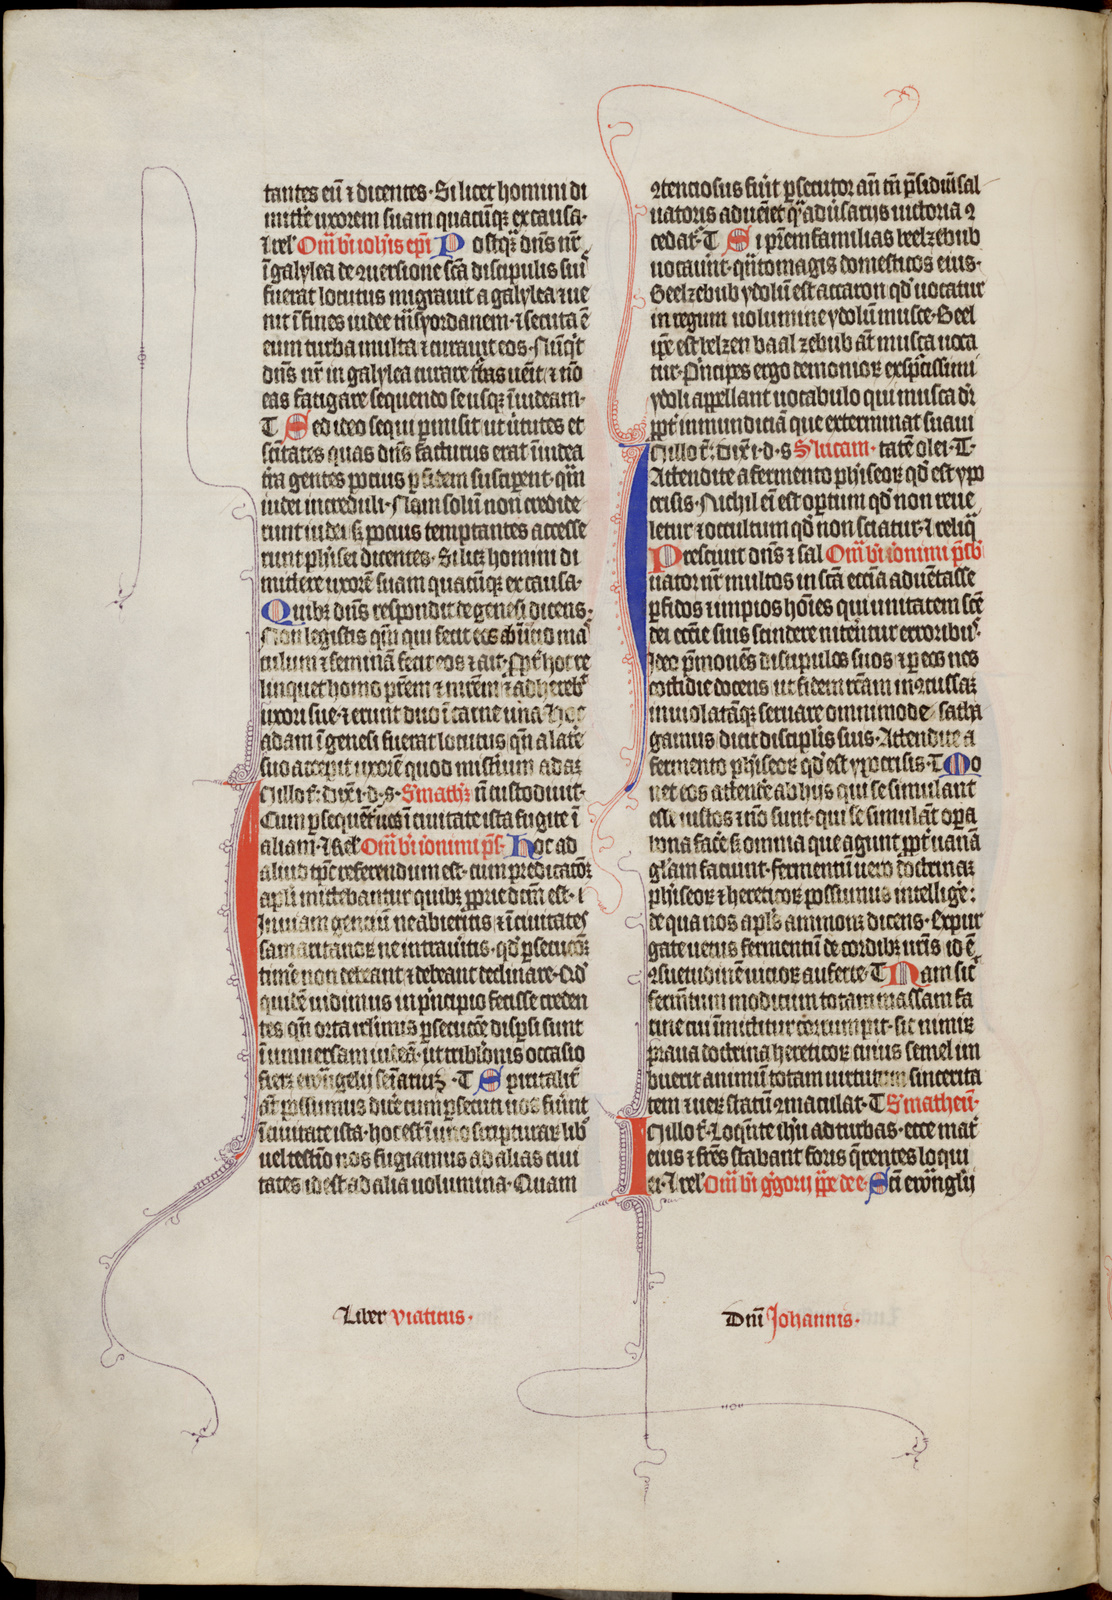 tantes eū ⁊ dicentes · Si licet homini di
mitte᷒ uxorem suam quacūqꝫ ex causa ·
⁊ rel᷒ Om̄ bī ioh̄is ep̄i Postqꝫ dn̄s nr̄
ī galylea de ꝯuersione sc̄a discipulis suis
fuerat locutus migrauit a galylea ⁊ ue
nit ī fines iudee tn̄s yordanem · ⁊ secuta ē
eum turba multa ⁊ curauit eos · Nūqͥt
dn̄s nr̄ in galylea curare t͛bas ueīt ⁊ nō
eas fatigare sequendo se usqꝫ ī iudeam ·
T Sed ideo sequi ꝑmisit ut uͥtutes et
sc̄itates quas dn̄s facturus erat ī iudea
tͣ gentes pocius ꝑ fidem susciperent · qm̄
iudei increduli · Nam solū non credide
runt iudei sꝫ pocius temptantes accesse
runt pħisei dicentes · Si licꝫ homini di
mittere uxorē suam quacūqꝫ ex causa ·
Quibꝫ dn̄s respondit de genesi dicens ·
Non legistis qm̄ qui fecit eos ab īitio ma
sculum ⁊ feminā fecit eos ⁊ ait · Ꝓpt᷒ hoc re
linquet homo pr̄em ⁊ mr̄em ⁊ adhereb᷒
uxori sue · ⁊ erunt duo ī carne una · Hoc
adam ī genesi fuerat locutus qn̄ a late᷒
suo accepit uxorē quod misterium ad
Illo t̄ · dix̄ i · d · s · S᷒ math̄ · n̄ custodiunt ·
Cum ꝑsequent᷒ uos ī ciuitate ista fugite ī
aliam · ⁊ rel᷒ Om̄ bī ieronimi p̄s · Hoc ad
aliud tp̄c referendum est · cum predicator᷒
apl̄i mittebantur quibꝫ ꝓprie dc̄m est · i
In uiam genciū ne abieritis ⁊ ī ciuitates
samaritanoꝝ ne intrauitis · qd̄ ꝑsecucōꝫ
time᷒ non debeant ⁊ debeant declinare · Qd̄
quidē uidimus in pͥncipio fecisse creden
tes qn̄ orta irl̄imis ꝑsecucōe disꝑsi sunt
ī uniuersam iudeā · ut tribl̄onis occasio
fieret ewāngelii · T Spiritalit᷒
aūt possumus dice᷒ cum ꝑsecuti uos fuīnt
ī ciuitate ista · hoc est ī uno scripturaꝝ lib᷒
uel testīo nos fugiamus ad alias ciui
tates id est ad alia uolumina · Quam
ꝯtenciosus fuīt ꝑsecutor an̄ tn̄ p̄sidiū sal
uatoris adueīet qͣ aduͥsariis uictoria ꝯ
cedat᷒ · T Si pr̄em familias beelzebub
uocauīnt · qn̄to magis domesticos eius ·
Beelzebub ydolū est accaron qd̄ uocatur
in regum uolumine ydolū musce · Beel
ip̄e est bel zen baal zebub āt musca uoca
tur · Pͥncipes ergo demonioꝝ ex spͥcissimi
ydoli appellant uocabulo qui musca dr̄
ꝓpt᷒ inmundiciā que exterminat suaui
Illo t̄ · dix̄ i · d · s S᷒ lucam · tatē olei · T ·
Attendite a fermento pħiseoꝝ qd̄ est ypo
crisis · Nichil eī est opertum qd̄ non reue
letur ⁊ occultum qd̄ non sciatur · ⁊ reliq̄
Presciuit dn̄s ⁊ sal Om̄ bī ieronimi p̄sb
uator nr̄ multos in sc̄a ecc̄ia aduētasse
ꝑfidos ⁊ impios hōies qui unitatem sc̄e
dei ecc̄ie suis scindere nitentur erroribꝫ ·
Ideo p̄monens discipulos suos ⁊ ꝑ eos nos
cottidie docens ut fidem rc̄am inꝯcussam
inuiolatāqꝫ seruare omnimode satha
gamus dicit discipl̄is suis · Attendite a
fermento pħiseoꝝ qd̄ est ypocrisis · T Mo
net eos attente᷒ ab hiis qui se simulant
esse iustos ⁊ nō sunt · qui se simulāt opa
bona face᷒ sꝫ omnia que agunt ꝓpt᷒ uanā
gl̄am faciunt · fermentū uero doctrinaꝫ
pħiseoꝝ ⁊ hereticoꝝ possumus intellige᷒ ·
de qua nos apl̄s ammonꝫ dicens · Expur
gate uetus fermentū de cordibꝫ ur̄is id ē
ꝯsuetudinē uicioꝝ auferte · T Nam sic᷒
fermentum modicum totam massam fa
rine cui īmittitur corrumpit · sic nimiꝝ
praua doctrina hereticoꝝ cuius semel im
buerit animū totam uirtutum sincerita
tem ⁊ ueꝝ statū ꝯmaculat · T S᷒ matheū ·
Illo t̄ · Loqn̄te ih̄u ad turbas · ecce mat᷒
eius ⁊ fr̄es stabant foris qͥrentes loqui
ei · ⁊ rel᷒ Om̄ bī gͥgorii pp̄e de e · Sc̄i ewāngl̄ii
Liber viaticus ·
Dnī Johannis ·